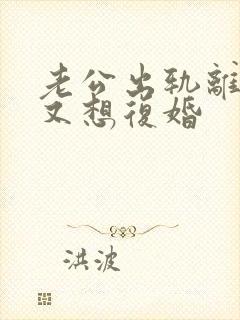 老公出轨離
又想復婚
洪波